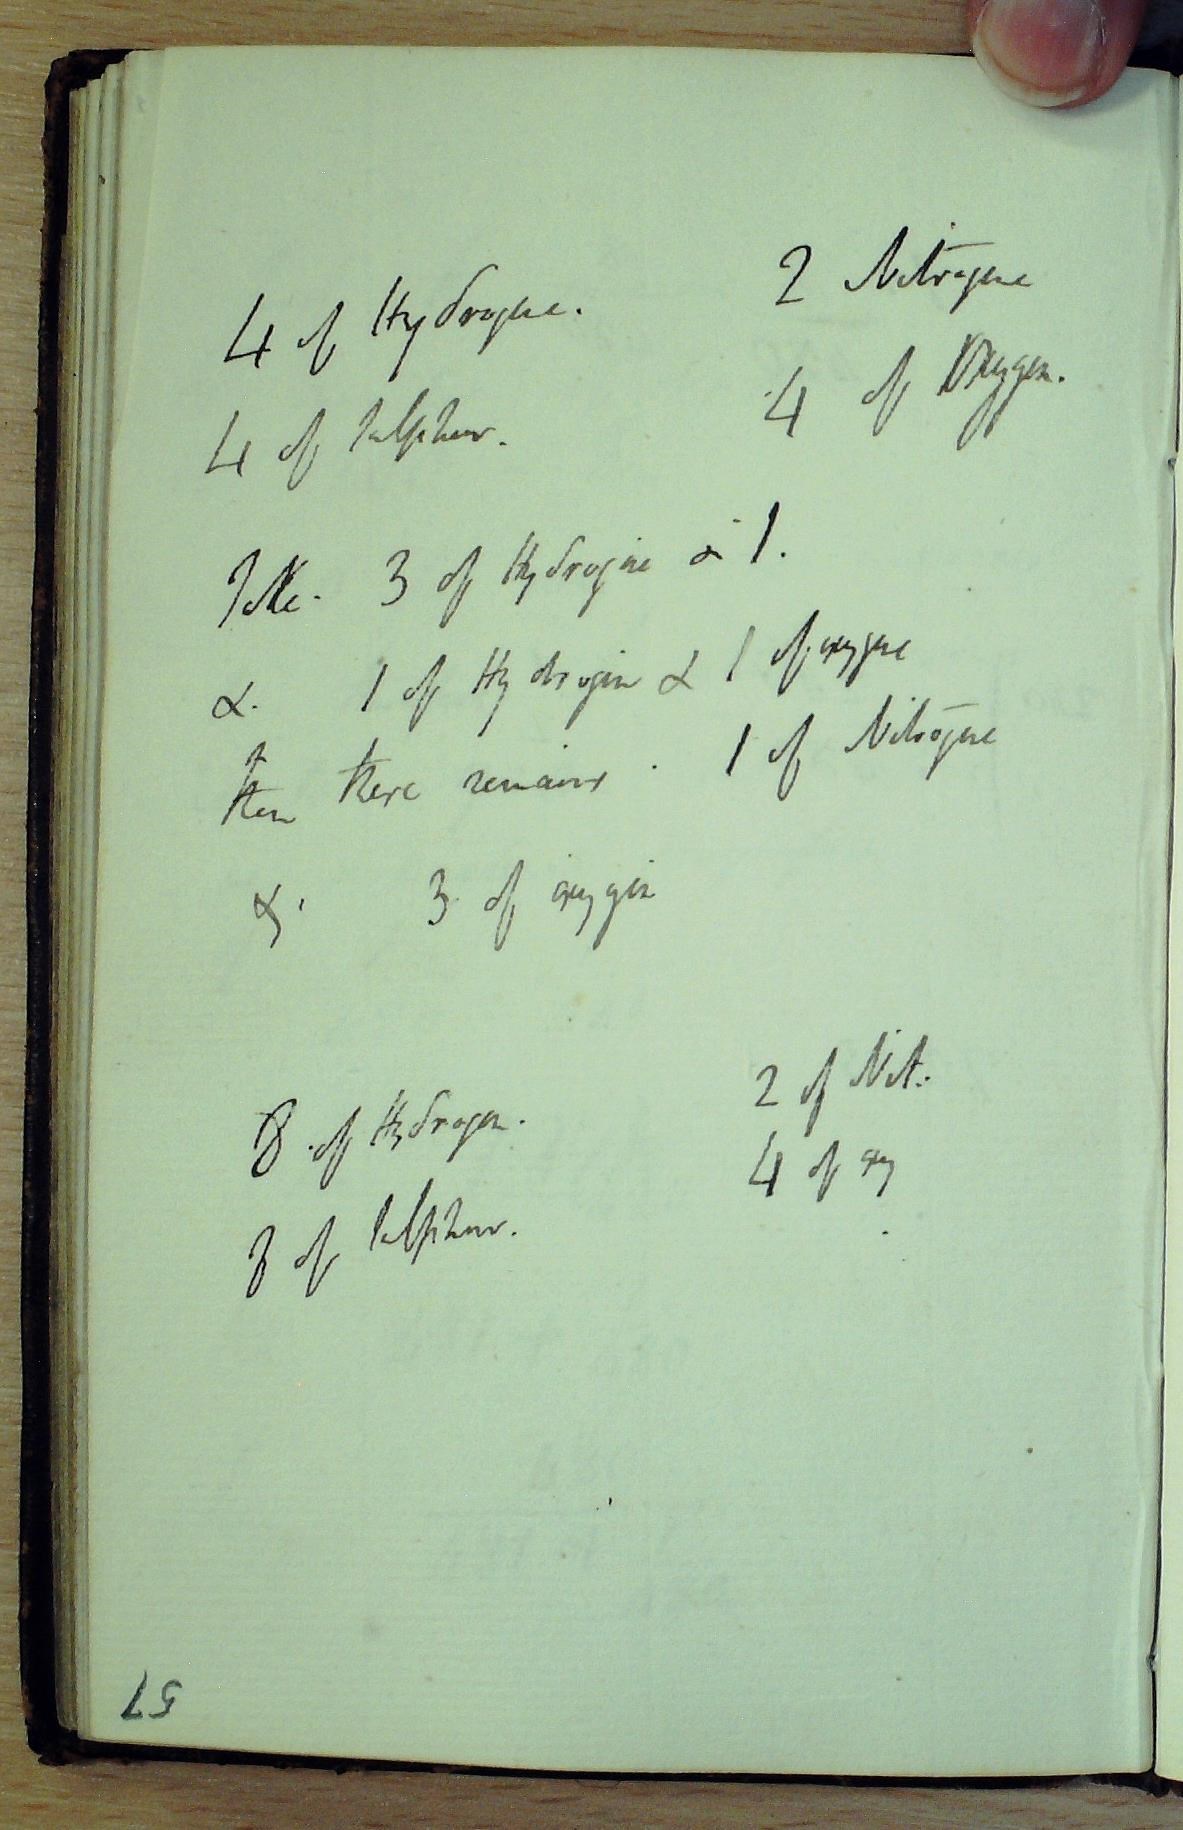 4 of Hydrogene. 2 Nitrogene
4 of Sulphur. 4 of Oxygen.
Take. 3 of Hydrogene & 1.
&. 1 of Hydrogen & 1 of oxygene
then there remains. 1 of Nitrogene
&. 3 of oxygen
8 of Hydrogen. 2 of Nit.
8 of Sulphur. 4 of oxy
57